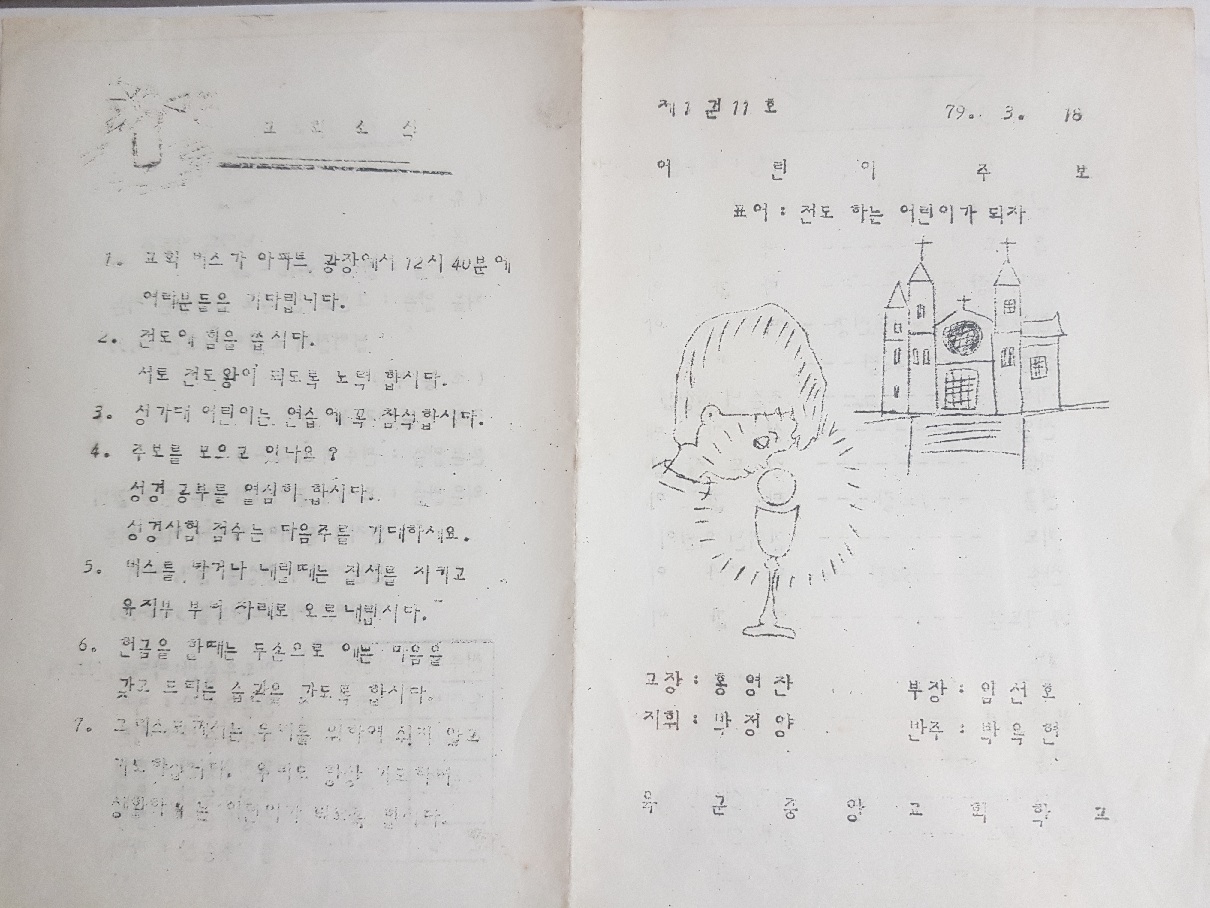 교회소식
1. 교회 버스가 아파트 광장에서 12시 40분에
여러분들을 기다립니다.
2. 전도에 힘을 씁시다.
서로 전도왕이 되도록 노력 합시다.
3. 성가대 어린이는 연습에 꼭 참석합시다.
4. 주보를 모으고 있나요?
성경 공부를 열심히 합시다.
성경시험 점수는 다음주를 기대하세요.
5. 버스를 타거나 내릴때는 질서를 지키고
유치부 부터 차례로 오르 내립시다.
6. 헌금을 할때는 두손으로 예쁜 마음을
갖고 드리는 습관을 갖도록 합시다.
7. 우리를 위하여 쉬지 않고
기도하십니다. 우리도 항상 기도하며
생활하는 어린이가 되도록 합시다.
제1권11호 79. 3. 18
어린이주보
표어 : 전도 하는 어린이가 되자
교장 : 홍영찬 부장 : 임선호
지휘 : 박정양 반주 : 박옥현
육군중앙교회학교